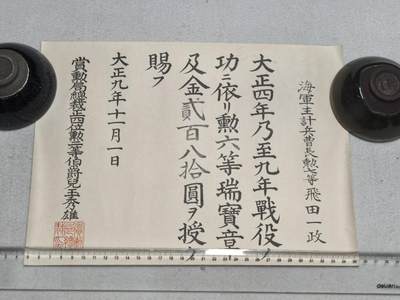 海軍主計兵曹長勲七等 飛田一政
大正四年乃至九年戰役ノ
功ニ依リ勲六等瑞寶章
及金貳百八拾圓ヲ授ケ
賜フ
大正九年十一月一日
賞勲局總裁正四位勲二等伯爵兒玉秀雄
deli